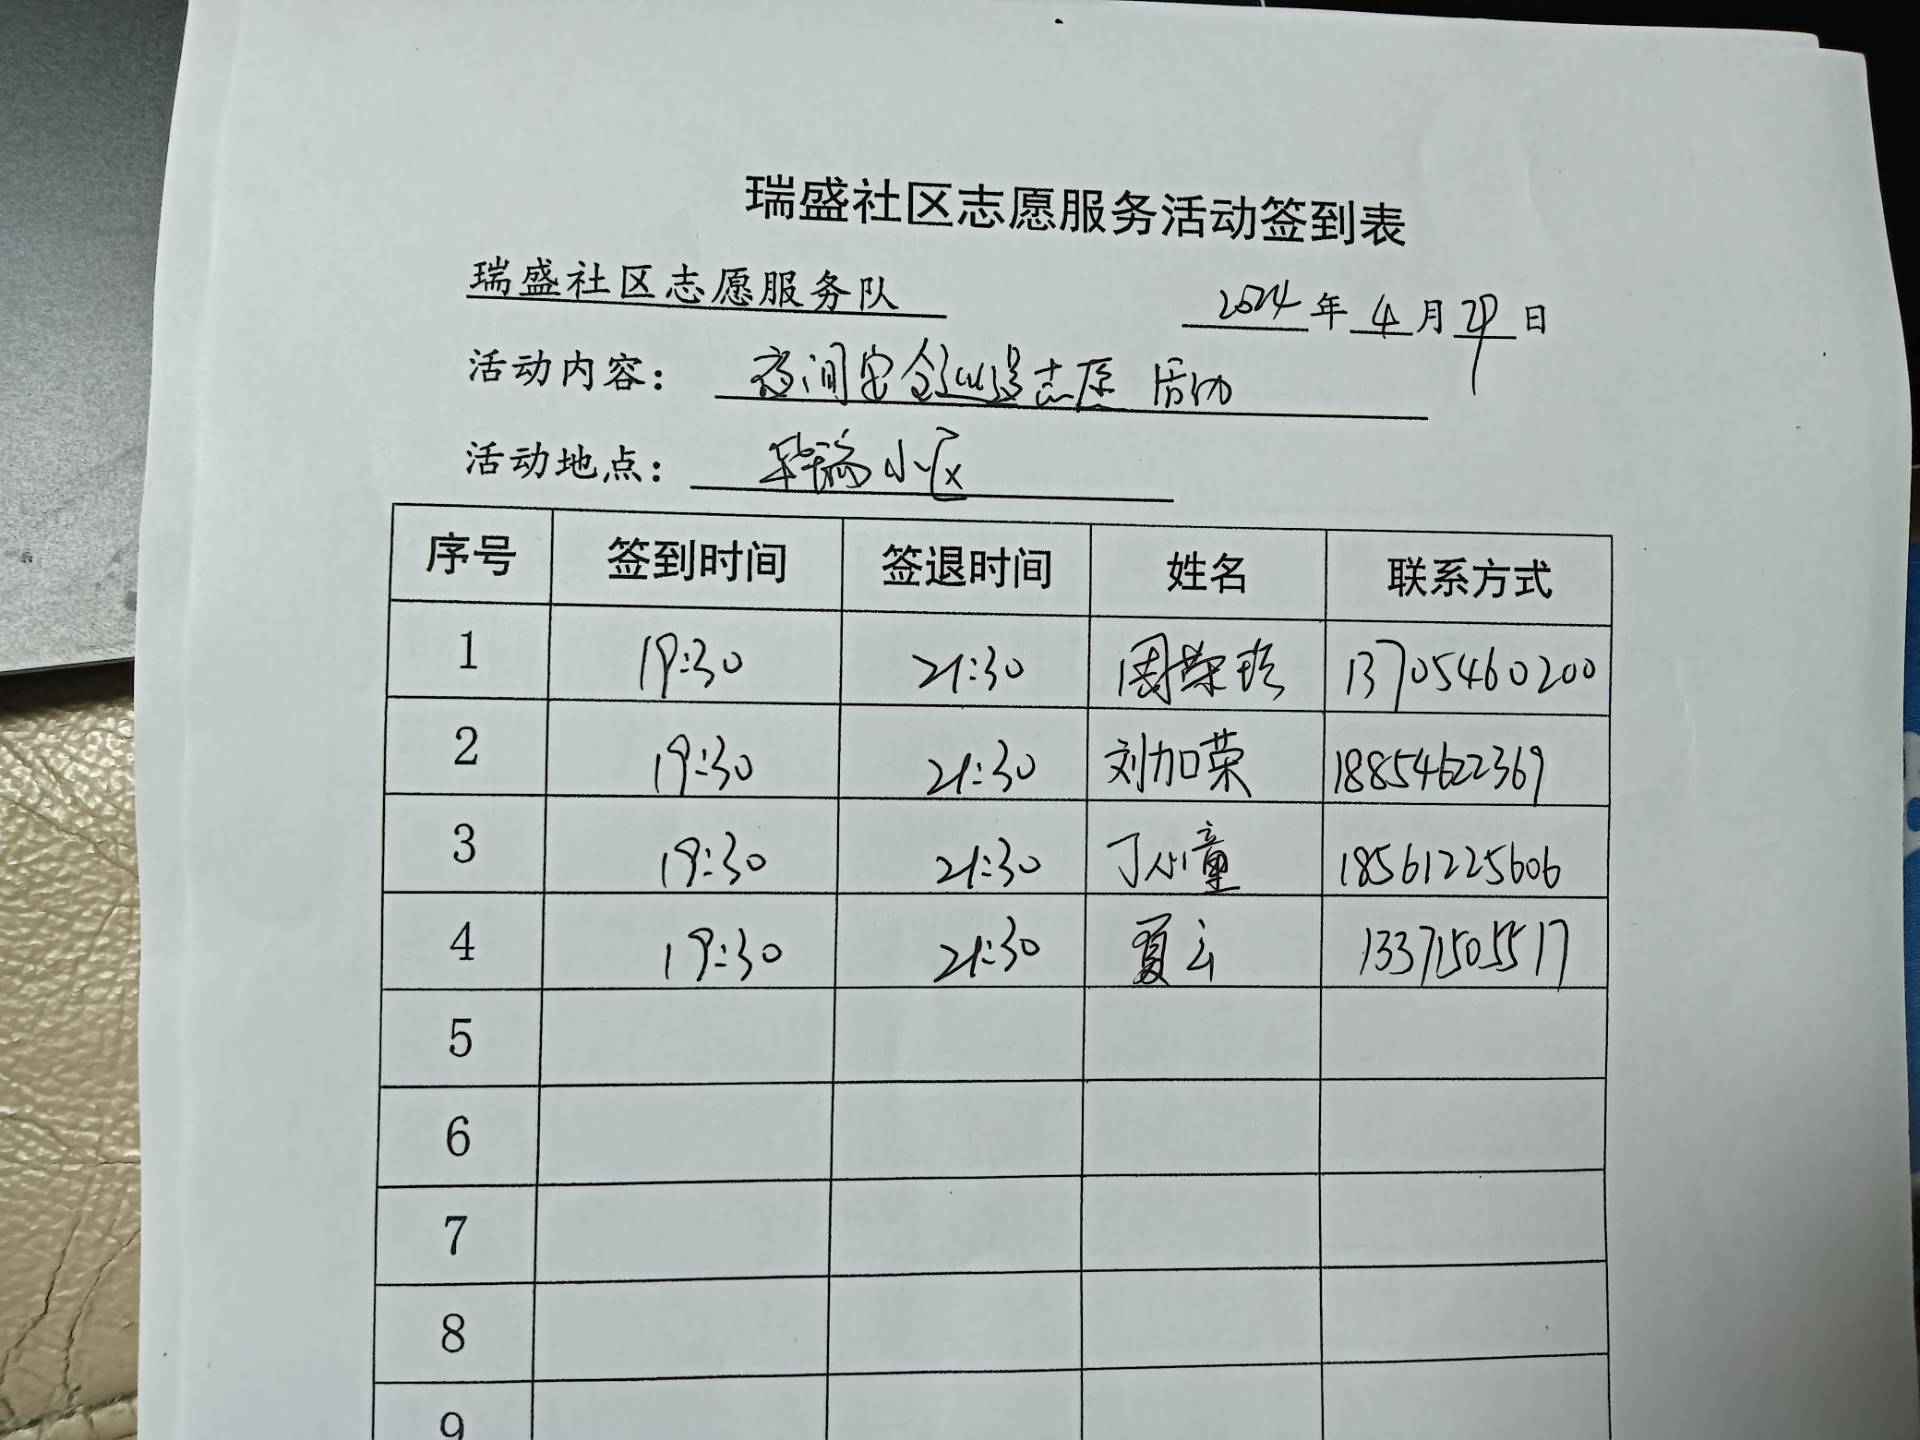 瑞盛社区志愿服务活动签到表
瑞盛社区志愿服务队 2024年4月29日
活动内容：夜间安全巡逻志愿活动
活动地点：小区
序号 签到时间 签退时间 姓名 联系方式
1 19:30 21:30 周荣珍 13705460200
2 19:30 21:30 刘加荣 18854622369
3 19:30 21:30 丁心童 18561225606
4 19:30 21:30 夏云 13371505517
5
6
7
8
9